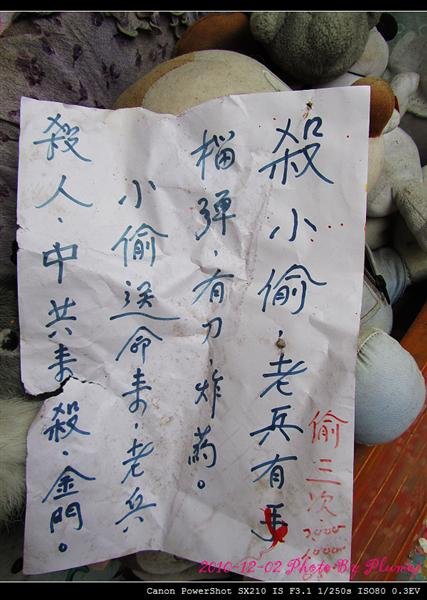 殺小偷.老兵有手
榴彈.有刀.炸葯。
小偷送命来.老兵
殺人.中共来殺.金門。
偷三次
2010-12-02 Photo By Plumon
Canon PowerShot SX210 IS F3.1 1/250s ISO80 0.3EV